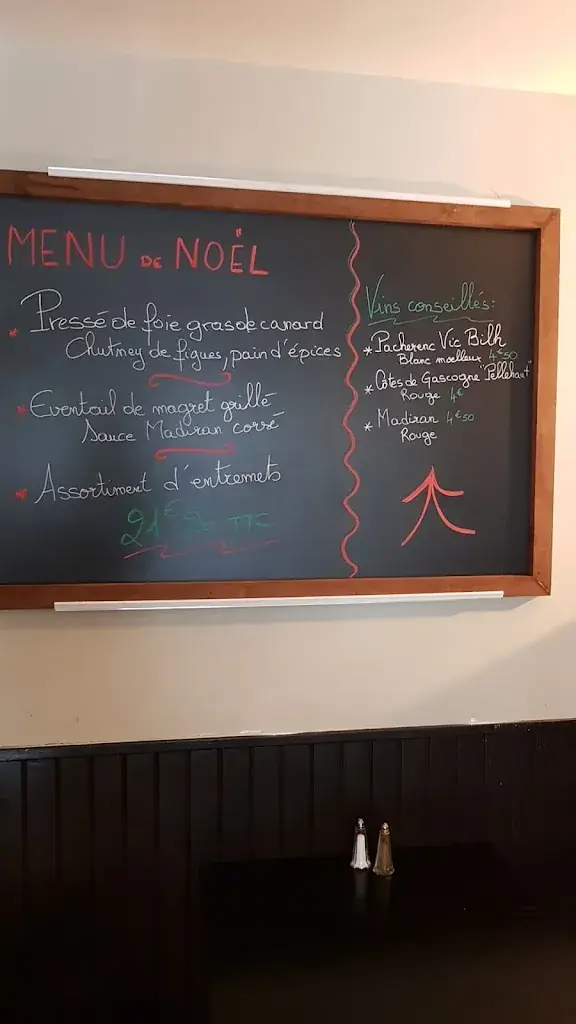 MENU DE NOËL
* Pressé de foie gras de canard
Chutney de figues, pain d'épices
* Eventail de magret grillé
Sauce Madiran corsé
* Assortiment d'entremets
21€ TTC
Vins conseillés:
* Pacherenc Vic Bilh
Blanc moelleux 4€50
* Côtes de Gascogne "Pellehaut"
Rouge 4€
* Madiran 4€50
Rouge